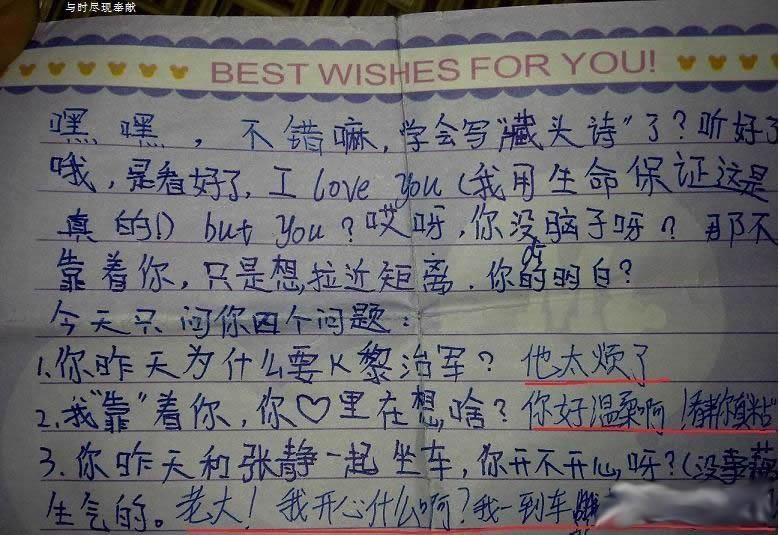 与时尽现奉献
BEST WISHES FOR YOU!
嘿嘿，不错嘛，学会写“藏头诗”了？听好了
哦，是看好了，I love you（我用生命保证这是
真的！）but you？哎呀，你没脑子呀？那不
靠着你，只是想拉近距离，你的明白？
今天只问你四个问题：
1.你昨天为什么要K黎治军？他太烦了
2.我“靠”着你，你♡里在想啥？你好温柔啊！
3.你昨天和张静一起坐车，你开不开心呀？（没
生气的。老大！我开心什么啊？我一到车